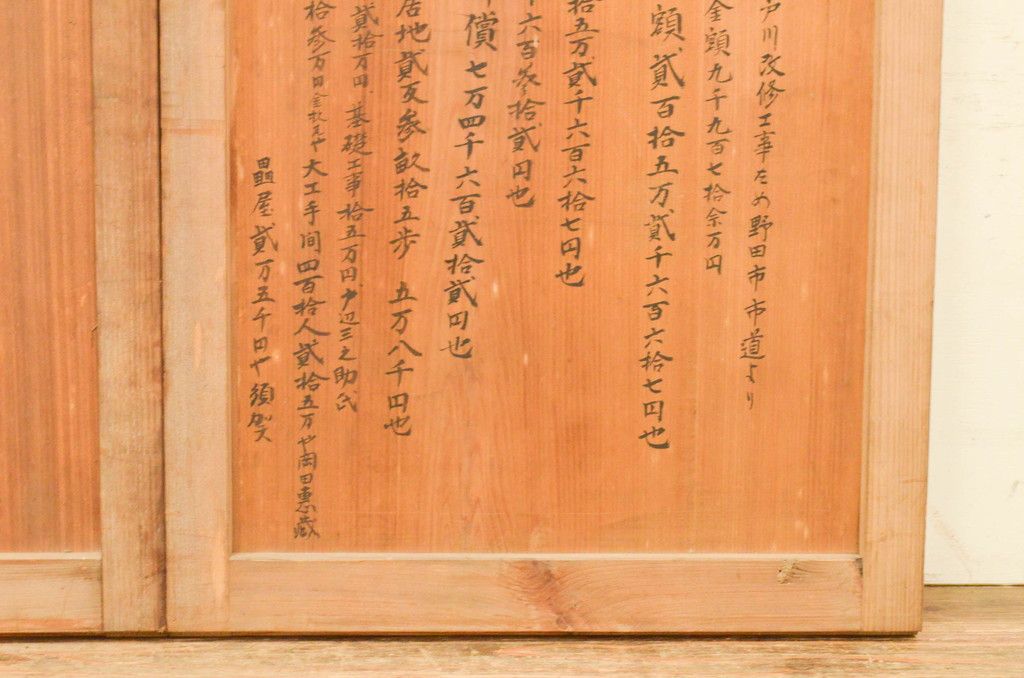 戸川改修工事ため野田市市道より
金額九千九百七拾余万円
額貳百拾五万貳千六百六拾七円也
拾五万貳千六百六拾七円也
千六百参拾貳円也
償七万四千六百貳拾貳円也
居地貳反参畝拾五歩 五万八千円也
貳拾万円、基礎工事拾五万円、 辺三之助氏
拾参万円 大工手間四百拾人貳拾五万や岡田恵蔵
畳屋貳万五千円や須賀